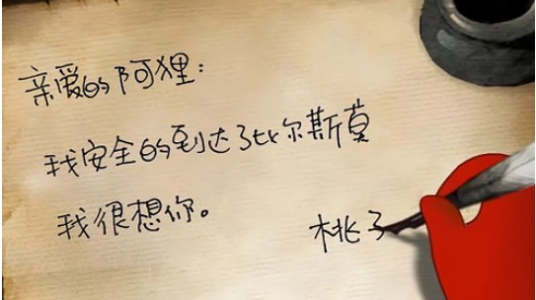 亲爱的阿狸：
我安全的到达了比尔斯莫
我很想你。
桃子